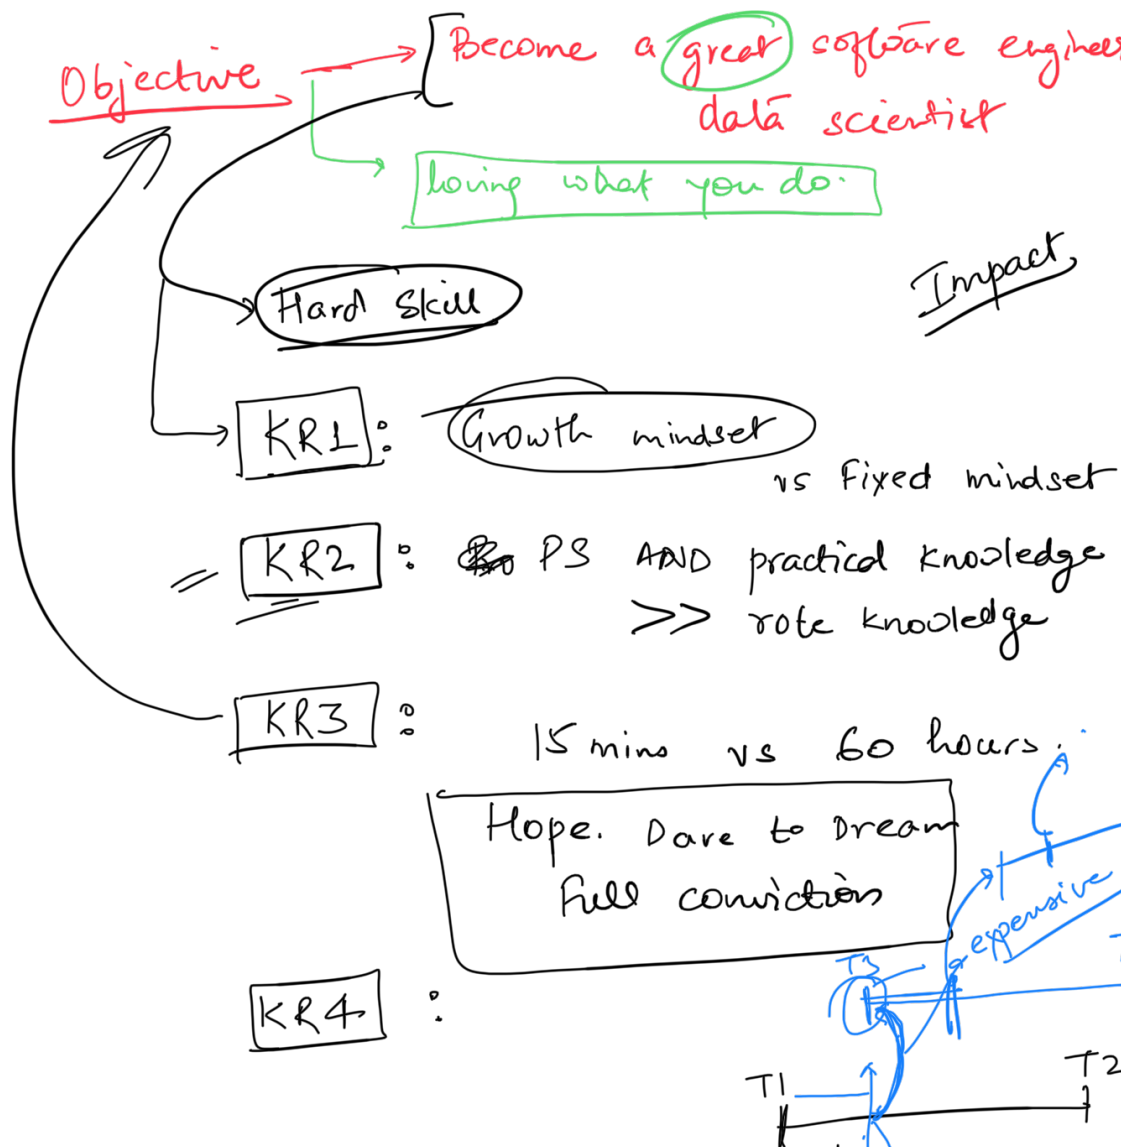 Objective
Become a great software engineer
data scientist
loving what you do.
Impact
Hard Skill
KR1 : Growth mindset
vs Fixed mindset
KR2 : PS AND practical knowledge
>> rote knowledge
KR3 :
15 mins vs 60 hours.
Hope. Dare to Dream
Full conviction
expensive
T3
KR4 :
T1
T2